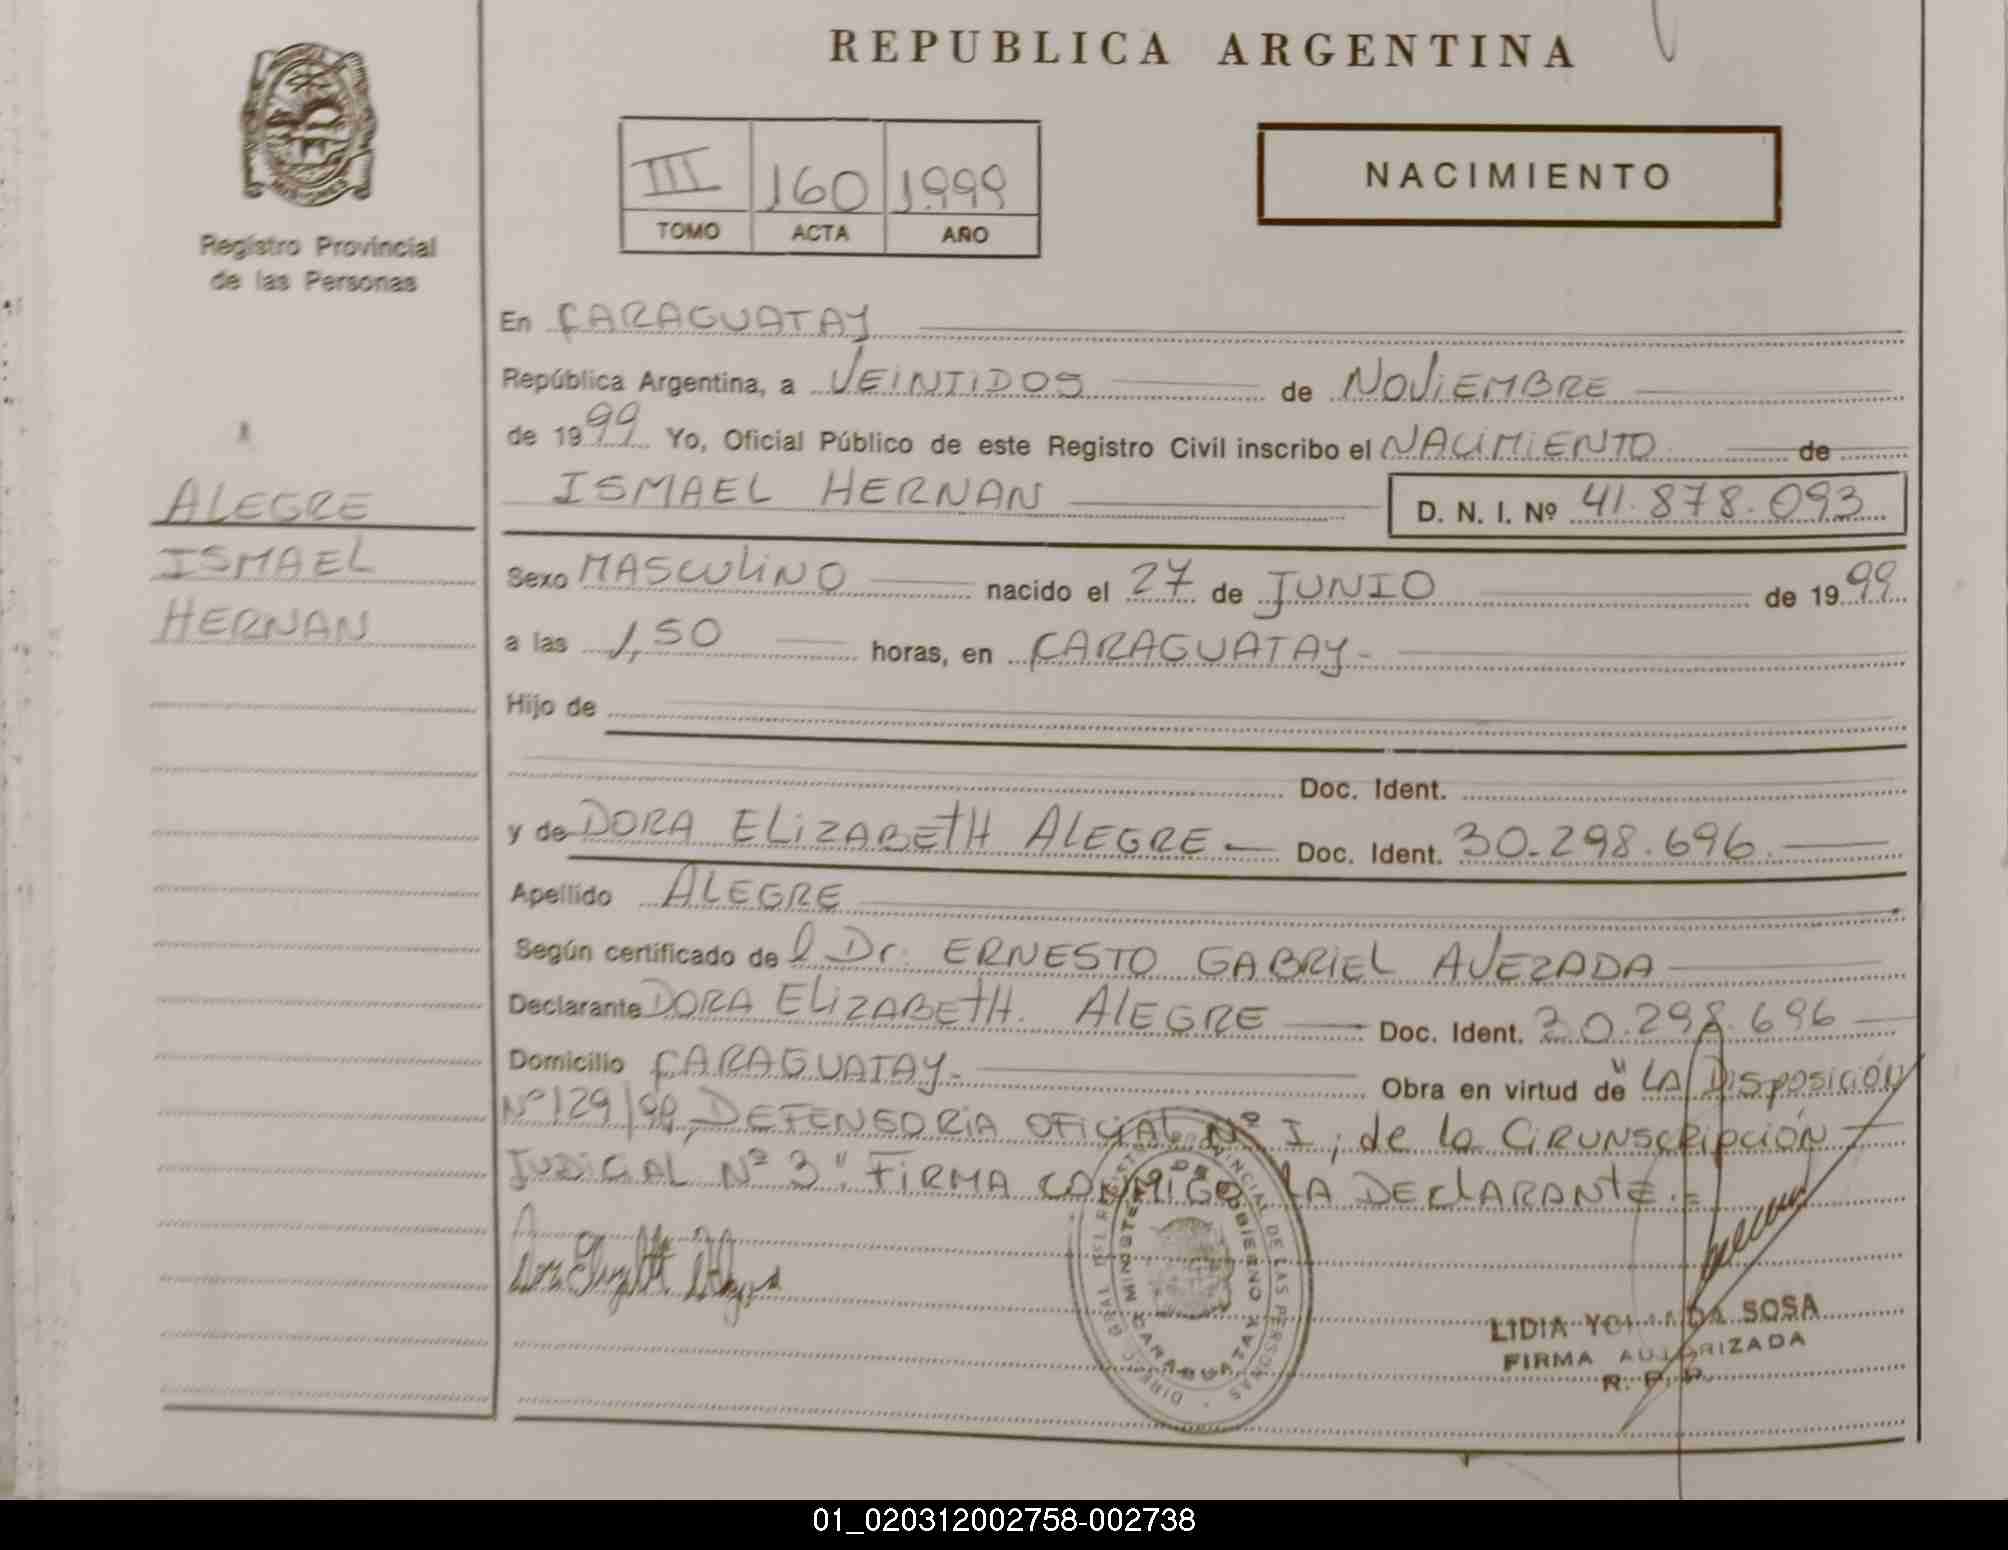 REPUBLICA ARGENTINA
MISIONES
Registro Provincial
de las Personas
III 160 1.999
TOMO ACTA AÑO
NACIMIENTO
ALEGRE
ISMAEL
HERNAN
En CARAGUATAY
República Argentina, a VEINTIDOS de NOVIEMBRE
de 1999 Yo, Oficial Público de este Registro Civil inscribo el NACIMIENTO de
ISMAEL HERNAN D. N. I. Nº 41.878.093
Sexo MASCULINO nacido el 27 de JUNIO de 1999
a las 1,50 horas, en CARAGUATAY-
Hijo de
Doc. Ident.
y de DORA ELIZABETH ALEGRE Doc. Ident. 30.298.696
Apellido ALEGRE
Según certificado de l Dr. ERNESTO GABRIEL AVEZADA
Declarante DORA ELIZABETH. ALEGRE Doc. Ident. 30.298.696
Domicilio CARAGUATAY- Obra en virtud de "LA DISPOSICIÓN
Nº 129/99, DEFENSORIA OFICIAL Nº I, de la CIRUNSCRIPCIÓN
JUDICIAL Nº 3". FIRMA CONMIGO LA DECLARANTE.=
DIREC. GRAL. DEL REGISTRO PROVINCIAL DE LAS PERSONAS
MINISTERIO DE GOBIERNO
CARAGUATAY
LIDIA YOLANDA SOSA
FIRMA AUTORIZADA
R. P. P.
01_020312002758-002738